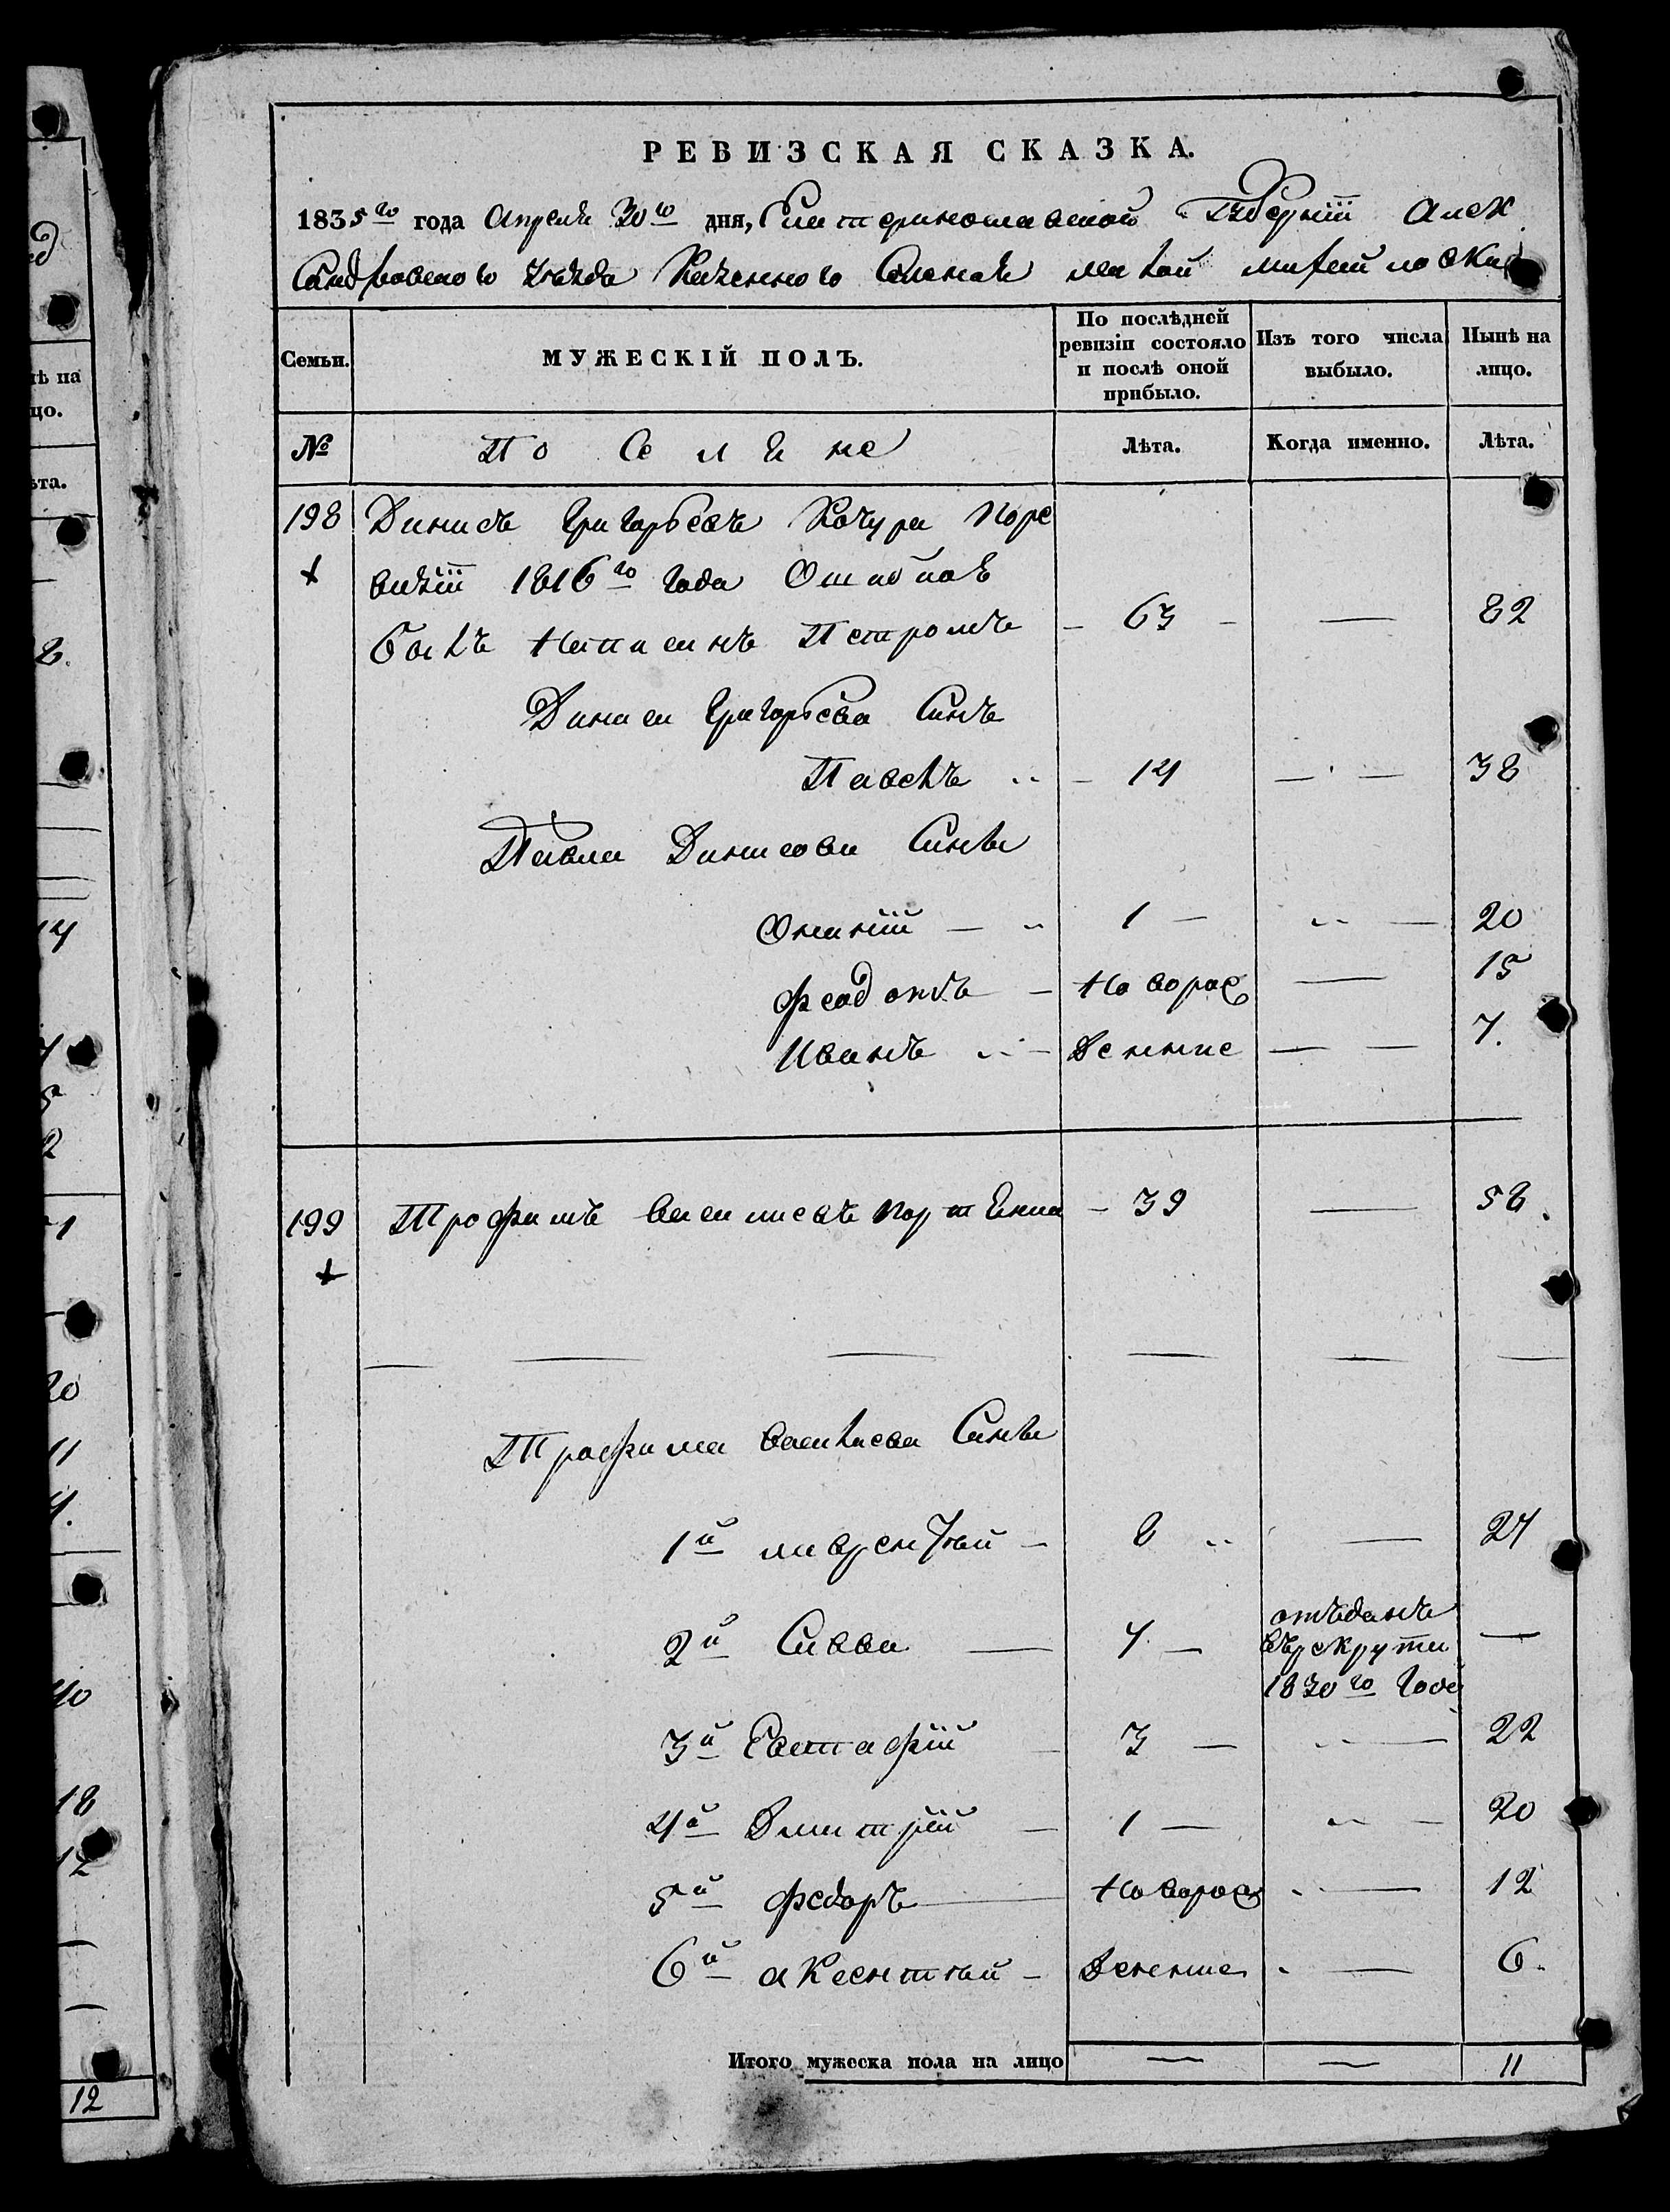 РЕВИЗСКАЯ СКАЗКА.
1835го года Апреля 30го дня, Екатеринославской Губернiи Алек
сандровского уезда Казенного Селенiя малой михайловски
Семьи.
МУЖЕСКIЙ ПОЛЪ.
По послѣдней ревизiи состояло и послѣ оной прибыло.
Изъ того числа выбыло.
Нынѣ на лицо.
№
Поселяне
Лѣта.
Когда именно.
Лѣта.
198 Динисъ Григорьевъ Качура поре
визiи 1816го года Ошибкаю
былъ написанъ Петромъ - 63 - — 82
Диниса Григорьева Синъ
Павелъ - 19 — 38
Павла Динисова Сины
Онаний — 1 — — 20
Феодотъ — Новорож — 15
Иванъ — денние — 7.
199 Трофимъ Василиевъ портянка - 39 — 58.
Трофима Василиева Сины
1й лаврентий — 8 — 27
отъданъ
2й Савва — 7. — върекрути —
1830го года
3й Евстафiй — 3 — — 22
4й Дмитрiй — 1 — — 20
5й Федоръ — Новорож — 12
6й аксентий — денние — 6.
Итого мужеска пола на лицо — — 11
нѣ на
цо.
ѣта.
8.
14
7
5
2
1
20
11
9.
40
18
12
12